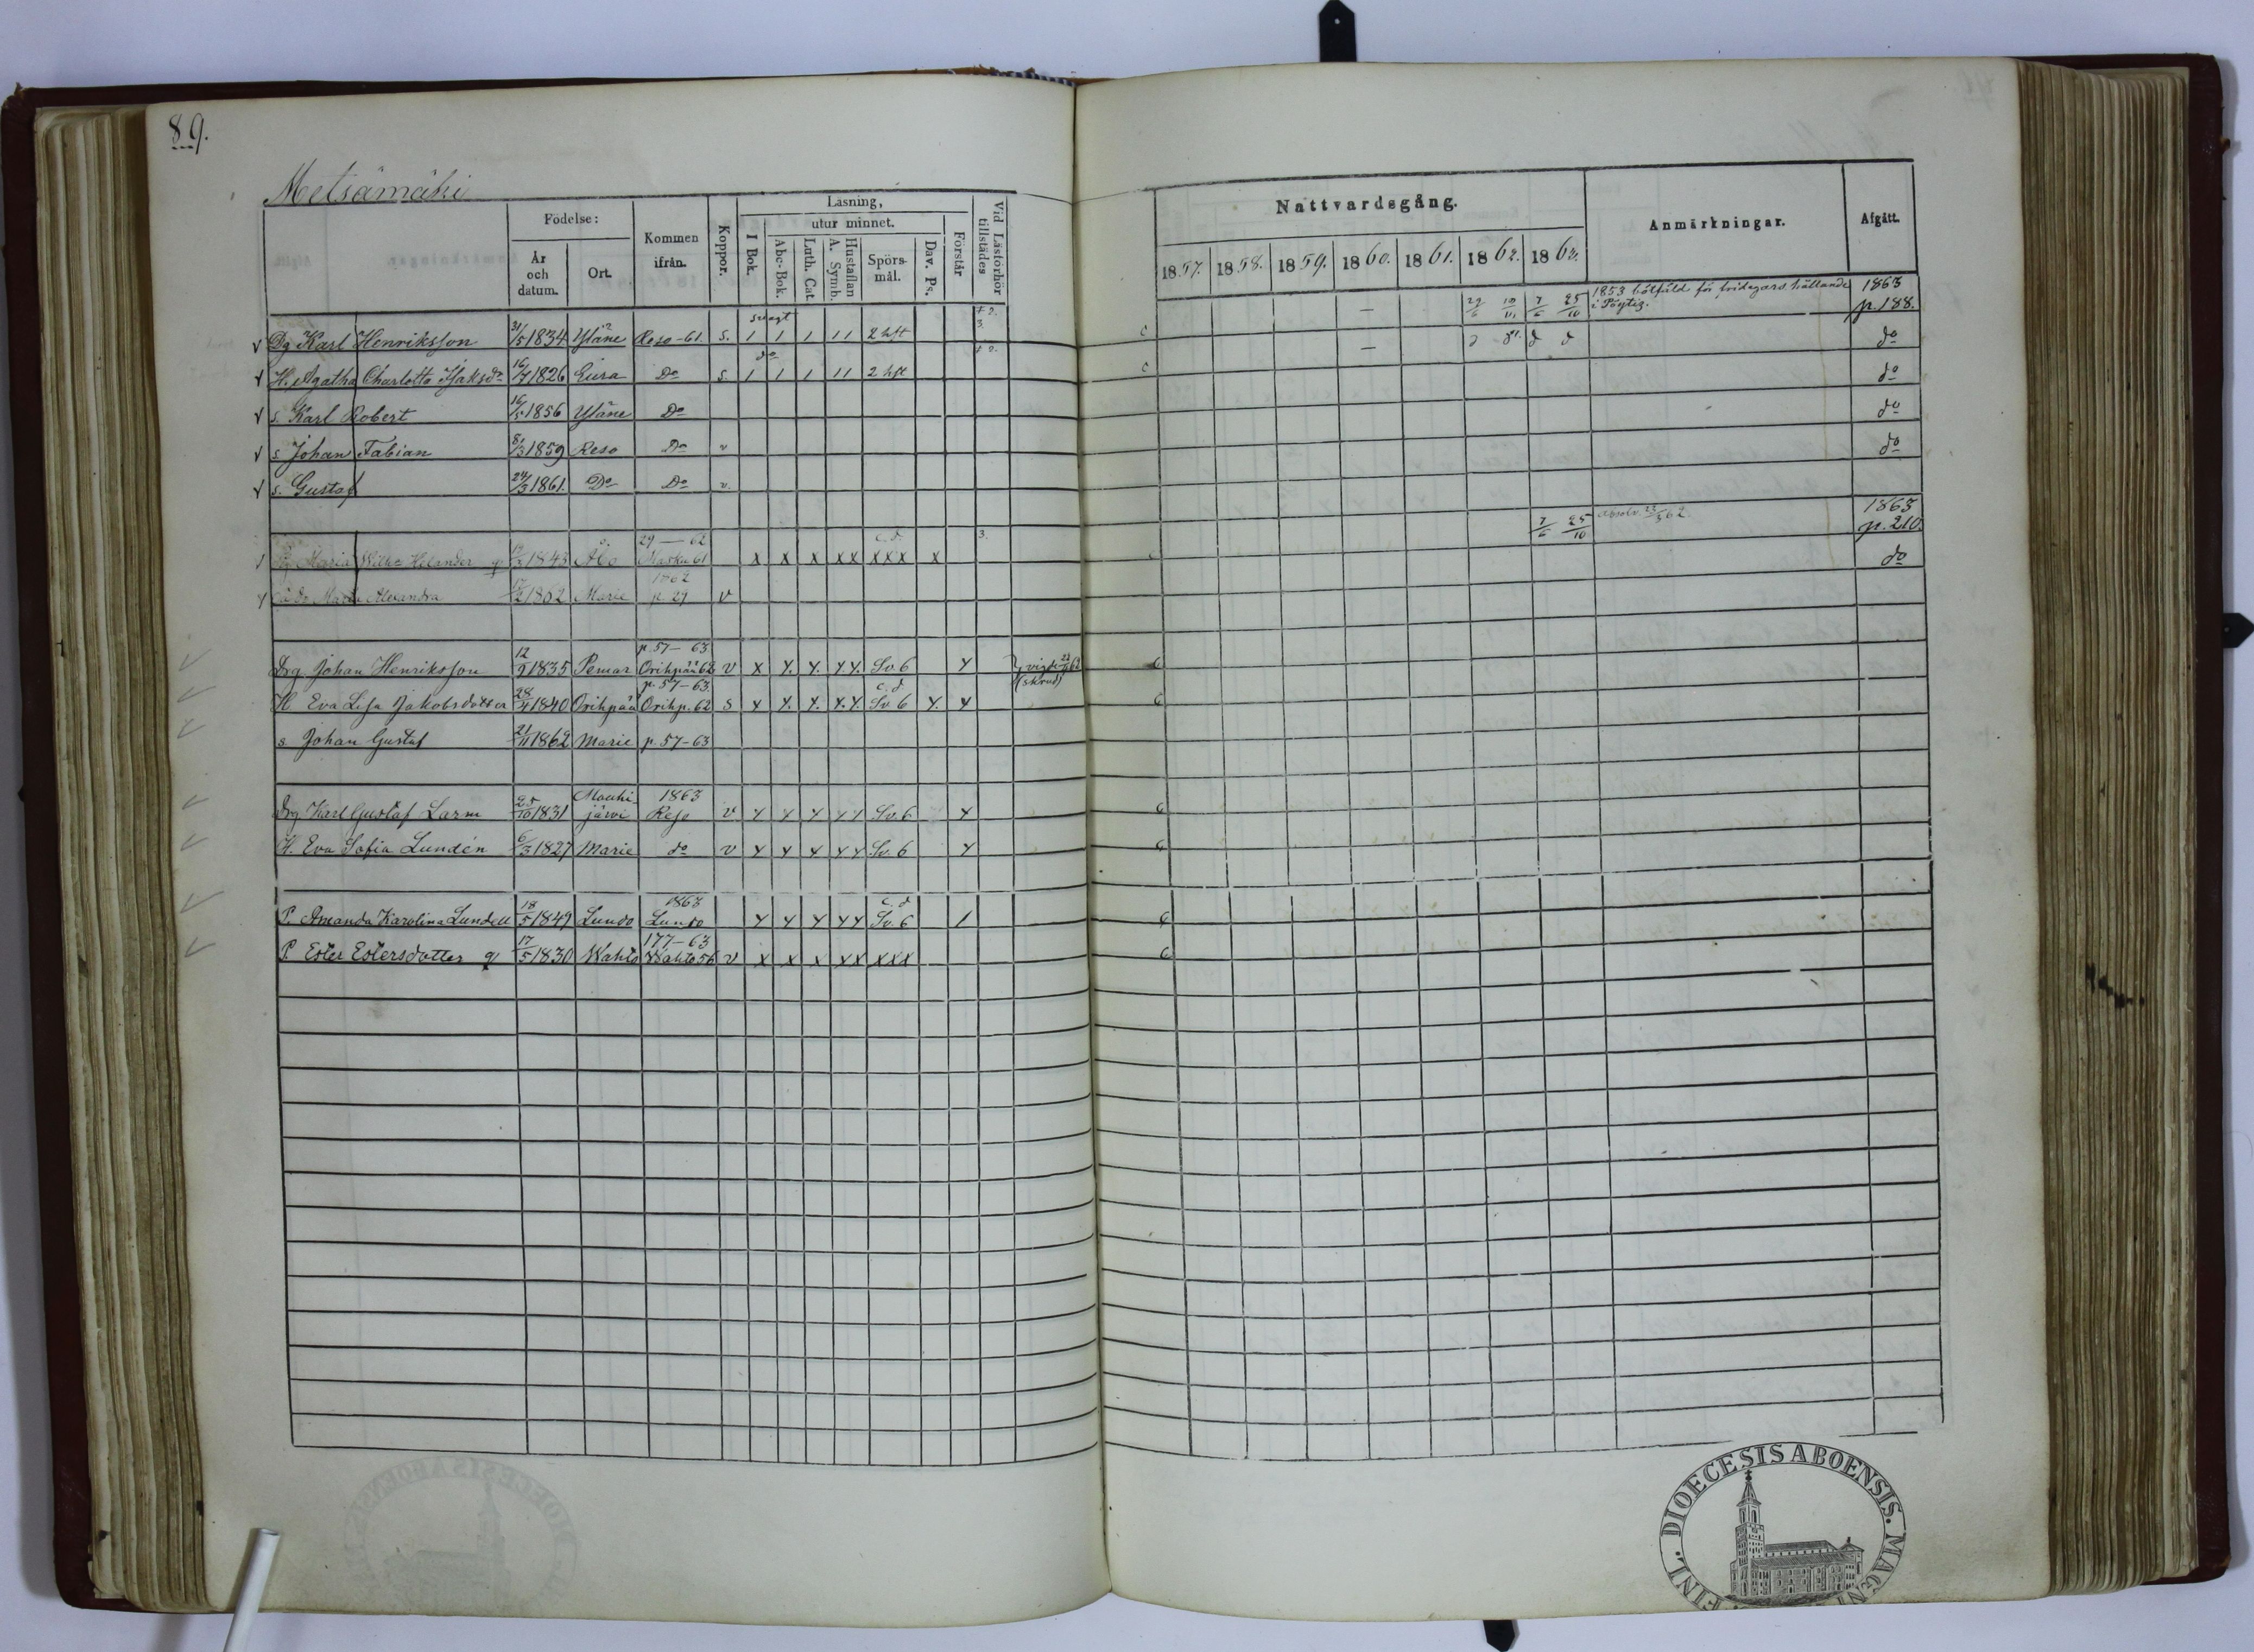 89.
Metsämäki
Födelse:
År och datum.
Ort.
Kommen ifrån.
Koppor.
Läsning,
utur minnet.
I Bok.
Abc-Bok.
Luth. Cat.
A. Symb.
Hustaflan
Spörs-mål.
Dav. Ps.
Förstår
Vid Läsförhör tillstädes
Nattvardsgång.
1857. 1858. 1859. 1860. 1861. 1862. 1862.
Anmärkningar.
Afgått.
Dg Karl Henriksson 31/5 1834 Yläne Reso-61. s. svagt 1 1 1 11 2 hft 1853 i Pöytis. 1863 p. 188.
H. Agatha Charlotta Isaksdr 16/7 1826 Eura Do s. do 1 1 1 11 2 hft do
s. Karl Robert 16/5 1856 Yläne Do do
s. Johan Fabian 8/3 1859 Reso Do v do
s. Gustaf 24/3 1861. Do Do v. do
Maria Wilha Helander q 1843 Åbo 29—62 Masku 61 x x x xx c.d. xxx x 3. 7/6 25/10 absolv. 1863 p. 210.
Maria Alexandra 1862 Marie 1862 p. 29 v do
Drg. Johan Henriksson 12/9 1835 Pemar p. 57-63 Orihpää 62 v x x x xx Sv. 6 x
H. Eva Lisa Jakobsdotter 28/4 1840 Orihpää p. 57-63. Orihp. 62 s x x x xx c.d. Sv. 6 x x
s. Johan Gustaf 21/11 1862 Marie p. 57-63
Drg Karl Gustaf Larm 25/10 1831 Mouhijärvi 1863 Reso v x x x xx Sv. 6 x
H. Eva Sofia Lundén 6/3 1827 Marie do v x x x xx Sv. 6 x
P. Amanda Karolina Lundell 18/5 1849 Lundo 1863 Lundo x x x xx c.d Sv. 6 1
P. Ester Estersdotter q 17/5 1830 Wahto 177-63 Wahto 56 v x x x xx xxx
DIOECESIS ABOENSIS. MAGNI
FINL.